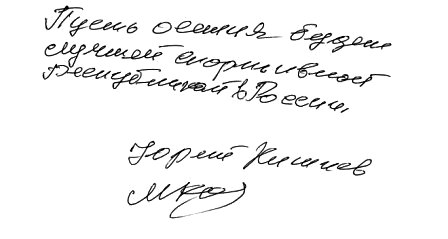 Пусть осетия будет
лучшей спортивной
Республикой в России.
Юрий